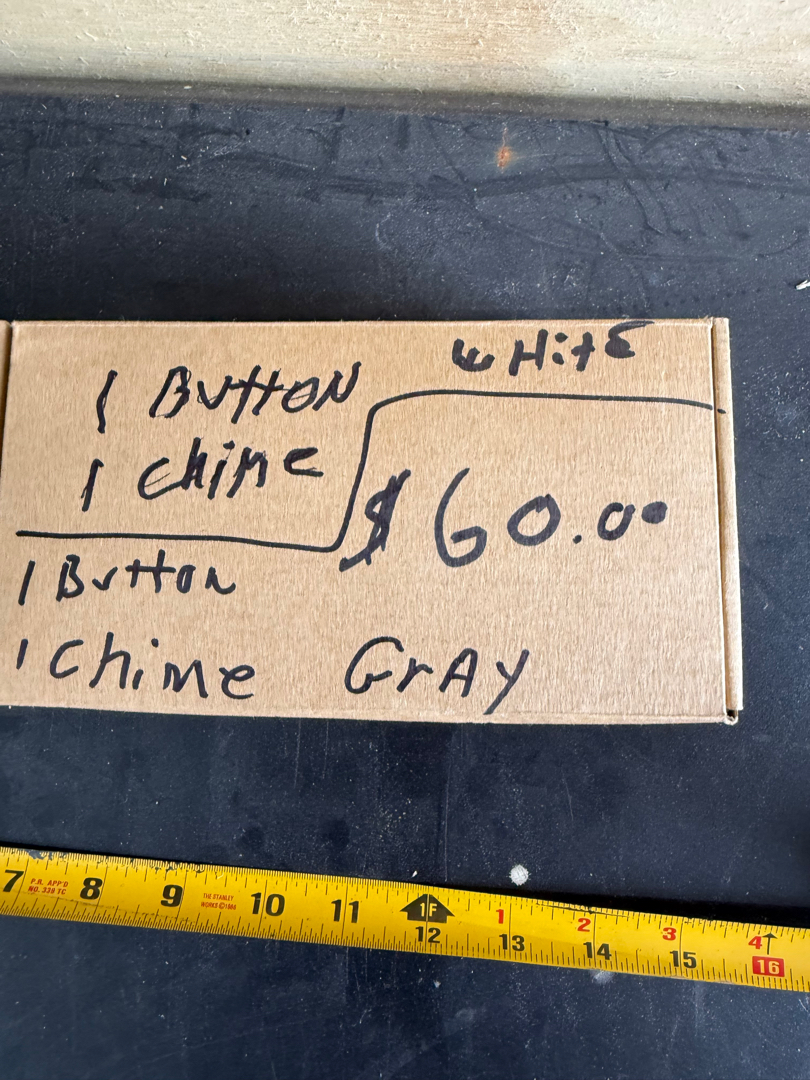 WHitE
1 ButtON
1 chime
$60.00
1 Button
1 Chime GrAY
7 P.R. APP'D NO. 339 TC 8 9 THE STANLEY WORKS ©1986 10 11 1F 1 2 3 4
12 13 14 15 16